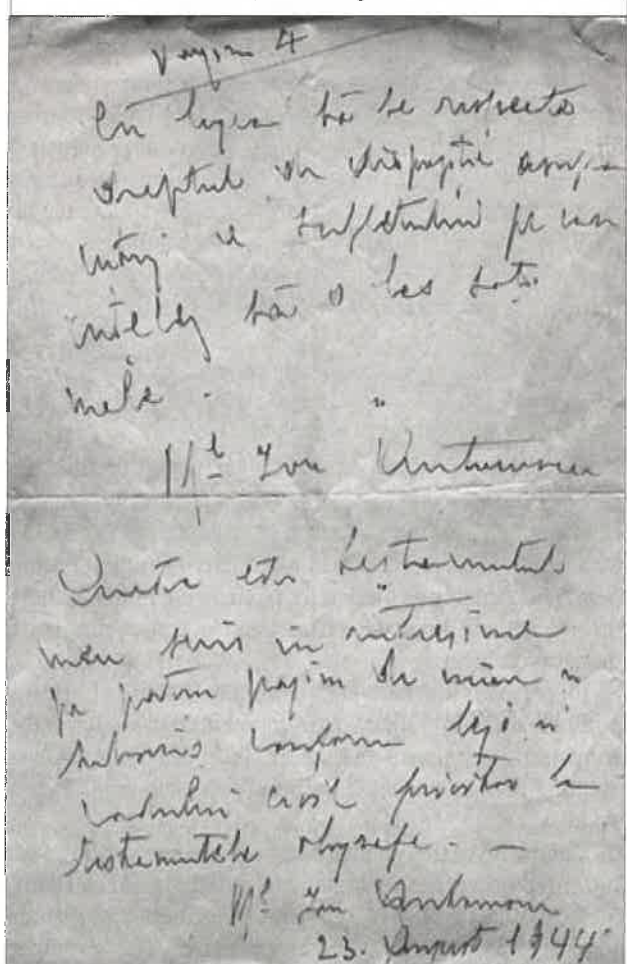 Pagina 4
legea să se respecte
dreptul de dispoziție asupra
sufletului pe care
înțeleg să o las soției
mele.
Ml Ion Antonescu
Acesta este testamentul
meu scris in intregime
pe patru pagini de mine și
subscris conform legi și
codului civil privitor la
testamentele olografe. —
Ml Ion Antonescu
23. August 1944